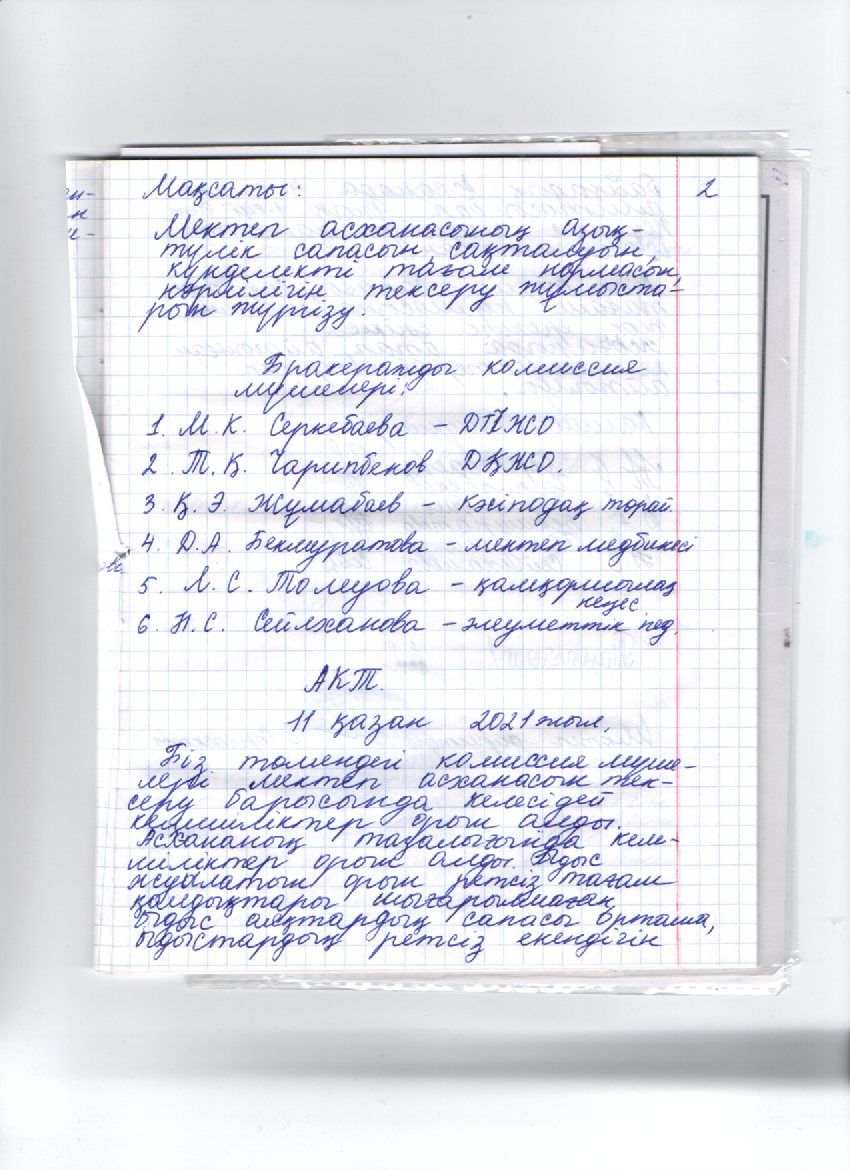 Мақсаты:
2
Мектеп асханасының азық-
түлік сапасын, сақталуын,
күнделекті тағам нормасын,
нәрлілігін тексеру жұмыста-
рын жүргізу.
Бракеражды комиссия
мүшелері:
1. М.К. Серкебаева – ДТІЖО
2. Т.Қ. Чарипбенов ДҚЖО.
3. Қ.Э. Жұмабаев – кәсіподақ төрай.
4. Д.А. Бекмуратова – мектеп медбикесі
5. Л.С. Толеуова – қамқоршылық
кеңес
6. Н.С. Сейлханова – әлеуметтік пед.
АКТ.
11 қазан 2021 жыл.
Біз төмендегі комиссия мүше-
лері мектеп асханасын тек-
серу барысында келесідей
кемшіліктер орын алды.
Асхананың тазалығында кем-
шіліктер орын алды. Ыдыс
жуылатын орын ретсіз тағам
қалдықтары шығарылмаған
Ыдыс аяқтардың сапасы орташа,
ыдыстардың ретсіз екендігін